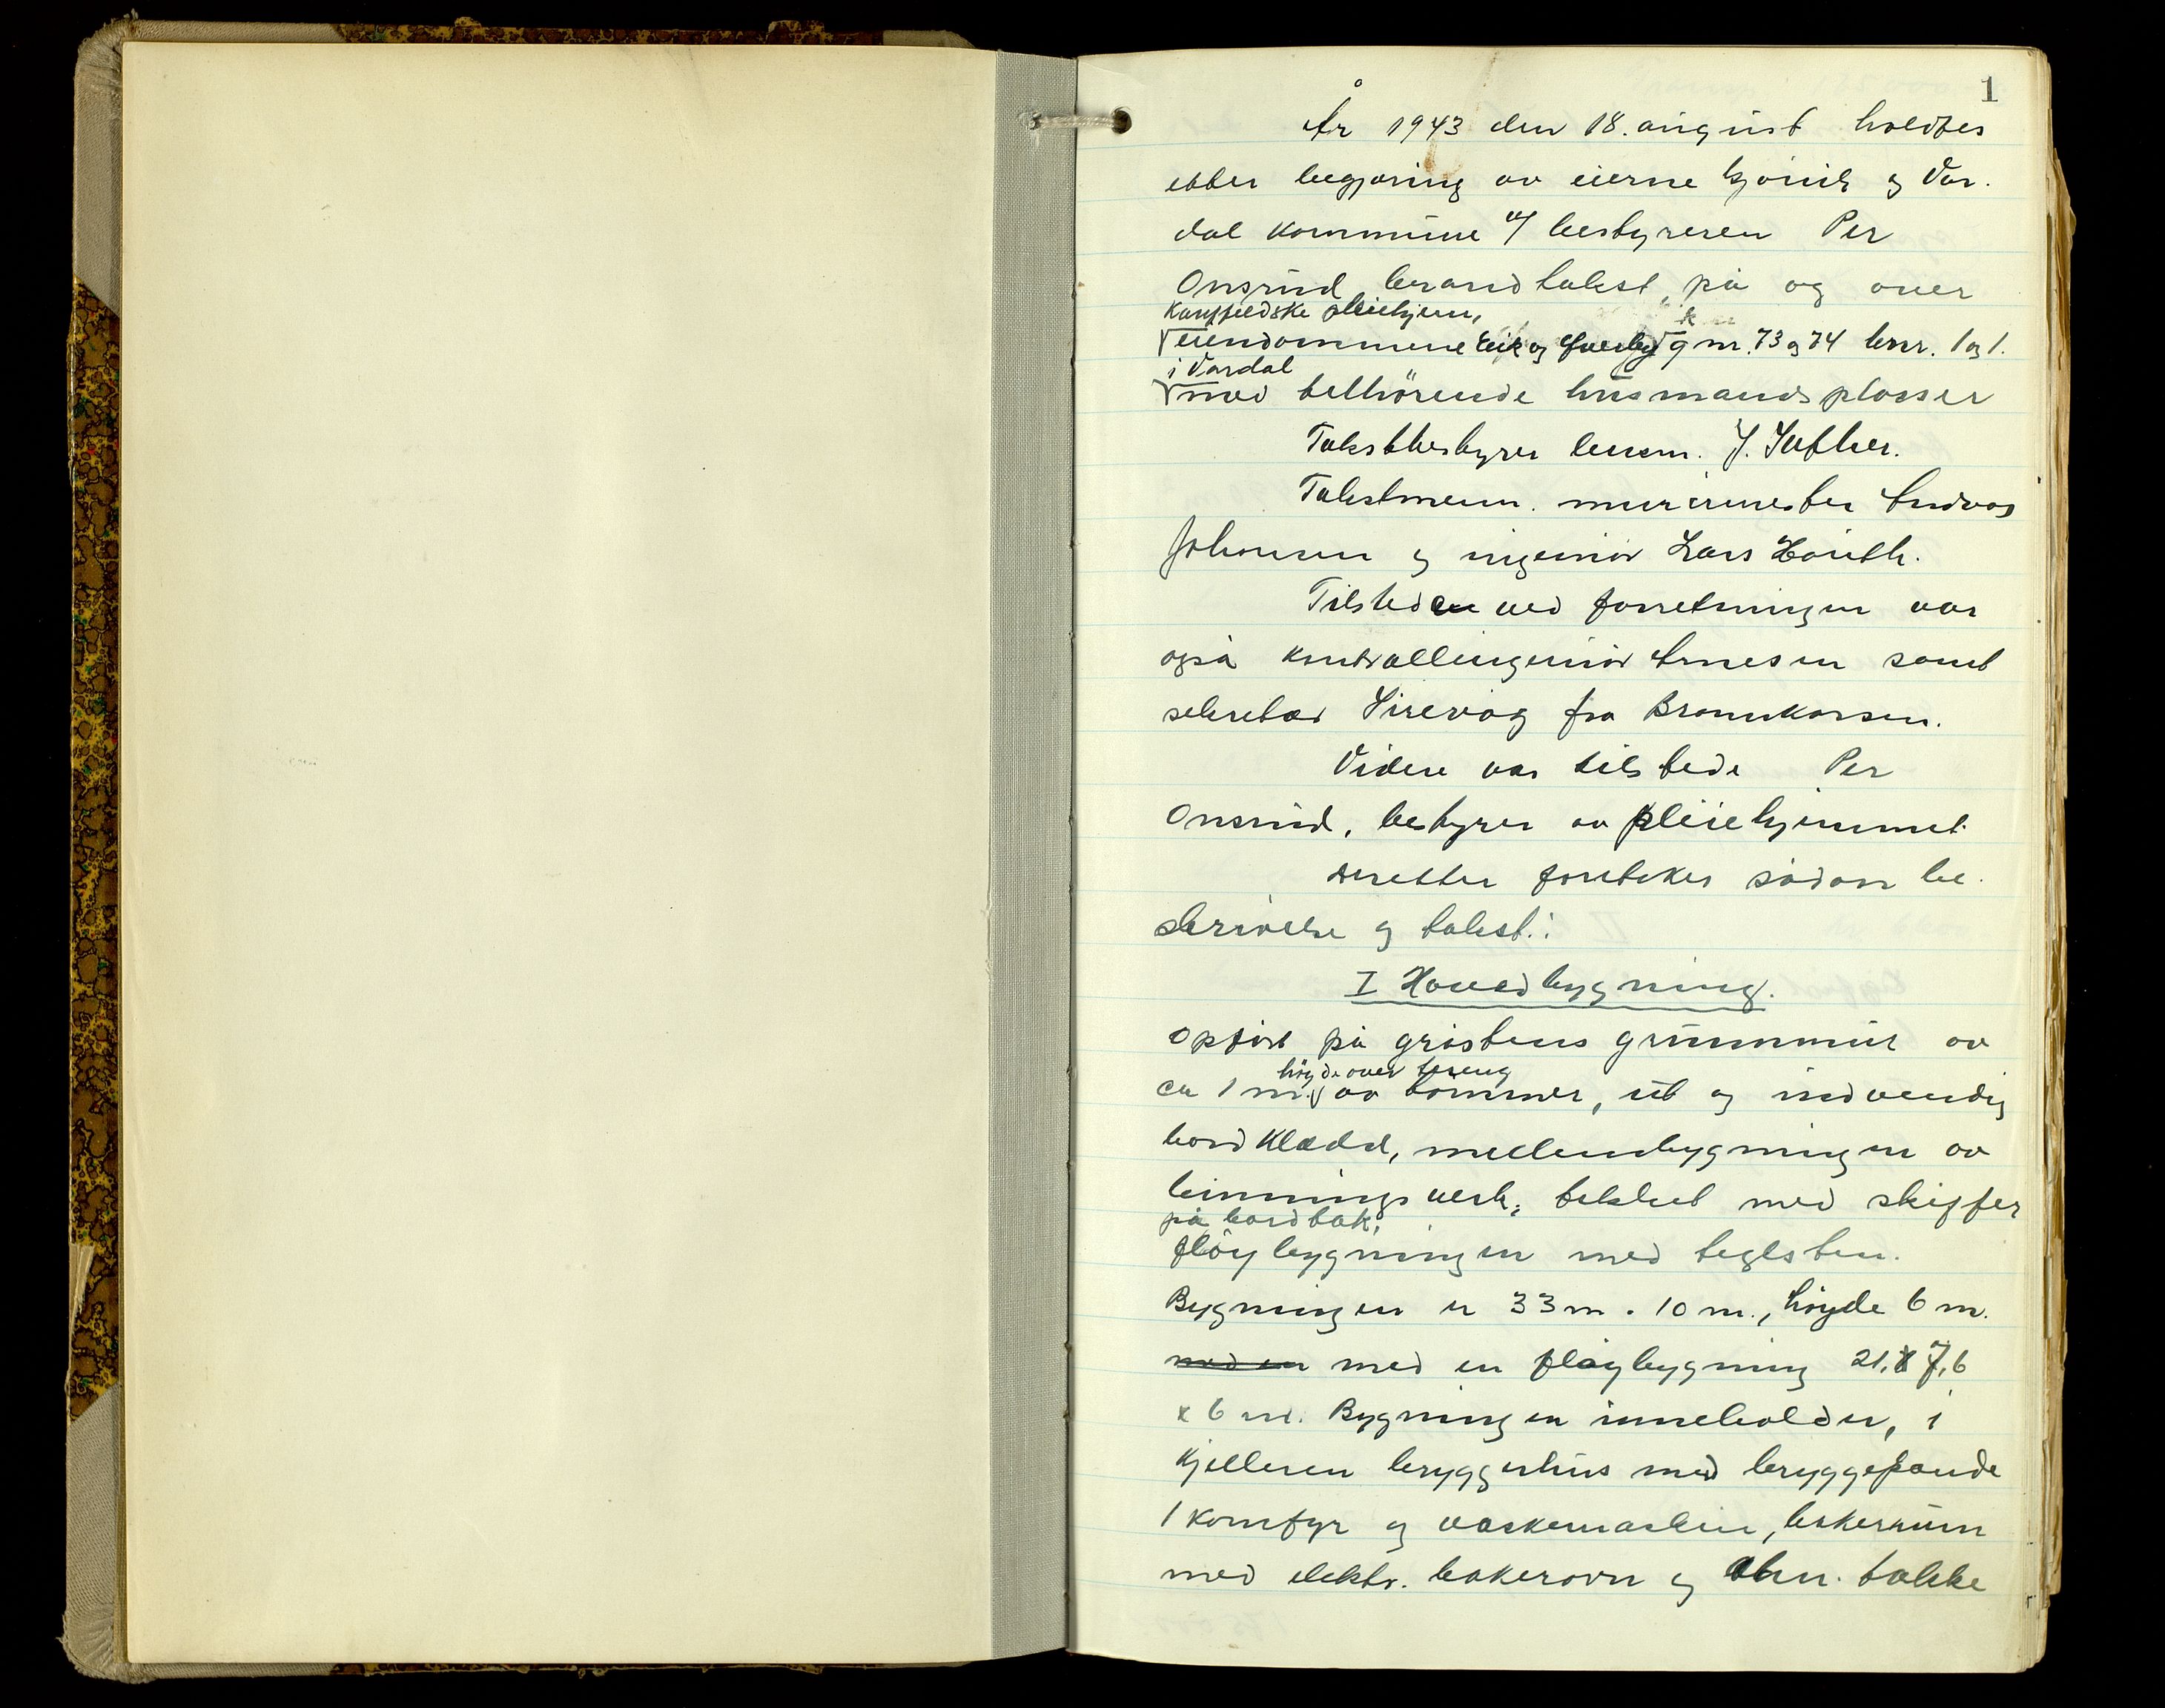 1
År 1943 den 18. august holdtes
etter begjæring av eierne Gjøvik og Var-
dal kommune v/ bestyreren Per
Onsrud brandtakst på og over
Kauffeldske pleiehjem,
eiendommene Eik og Øverby gnr. 73 og 74 bnr. 1 og 1.
i Vardal
med tilhörende husmandsplasser
Takstbestyrer lensm. J. Sæther.
Takstmenn. murermester Andreas
Johansen og ingeniör Lars Høuth.
Tilstede ved forretningen var
også kontrollingeniör Arnesen samt
sekretær Sirevåg fra Brannkassen.
Videre var tilstede Per
Onsrud, bestyrer av pleiehjemmet.
Deretter foretokes sådan be-
skrivelse og takst.:
I Hovedbygning.
Opfört på gråstens grunnmur av
ca 1 m. höyde over tereng av tömmer, ut og indvendig
bordklædd, mellembygningen av
binningsverk, tekket med skiffer
på bordtak,
flöybygningen med teglsten.
Bygningen er 33 m. 10 m., höyde 6 m.
med en med en flöybygning 21, x 7,6
x 6 m. Bygningen inneholder, i
kjelleren bryggerhus med bryggepande
1 komfyr og vaskemaskin, bakerum
med elektr. bakerovn og alm. takke